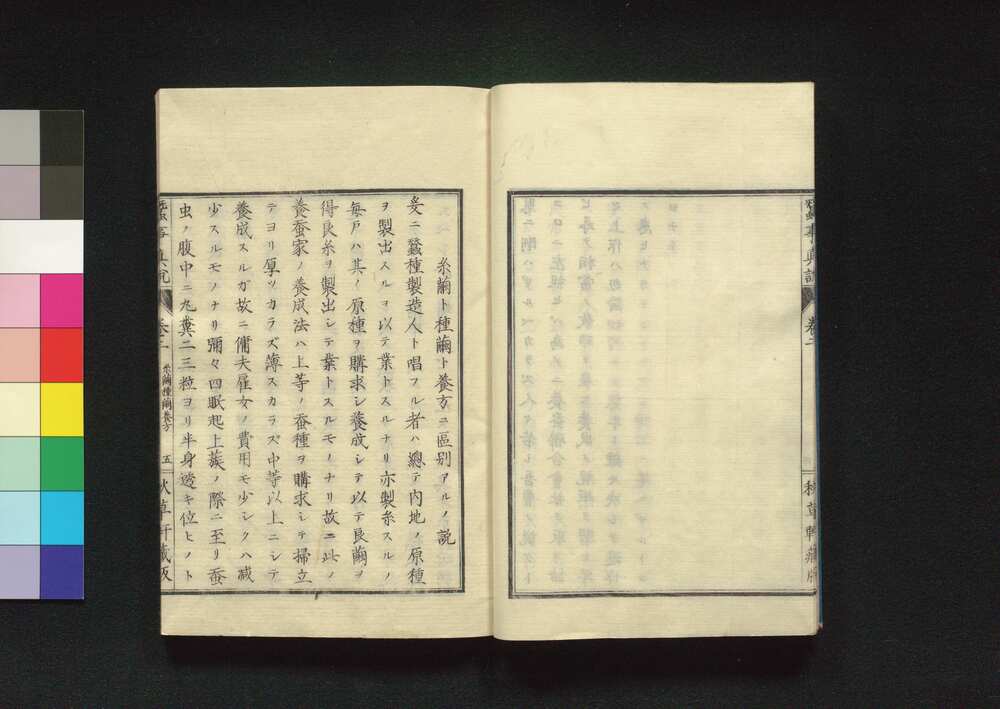 蚕事真説
巻二
秋草軒蔵版
糸繭ト種繭ト養方ニ區別アルノ説
爰ニ蠶種製造人ト唱フル者ハ總テ内地ノ原種
ヲ製出スルヲ以テ業トスルナリ亦製糸スルノ
毎戸ハ其ノ原種ヲ購求シ養成シテ以テ良繭ヲ
得良糸ヲ製出シテ業トスルモノナリ故ニ此ノ
養蚕家ノ養成法ハ上等ノ蚕種ヲ購求シテ掃立
テヨリ厚ツカラズ薄スカラズ中等以上ニシテ
養成スルガ故ニ傭夫雇女ノ費用モ少シクハ減
少スルモノナリ彌々四眠起上蔟ノ際ニ至リ蚕
虫ノ腹中ニ丸糞二三粒ヨリ半身透キ位ヒノト
巻二
糸繭種繭養方
五
秋草軒蔵版